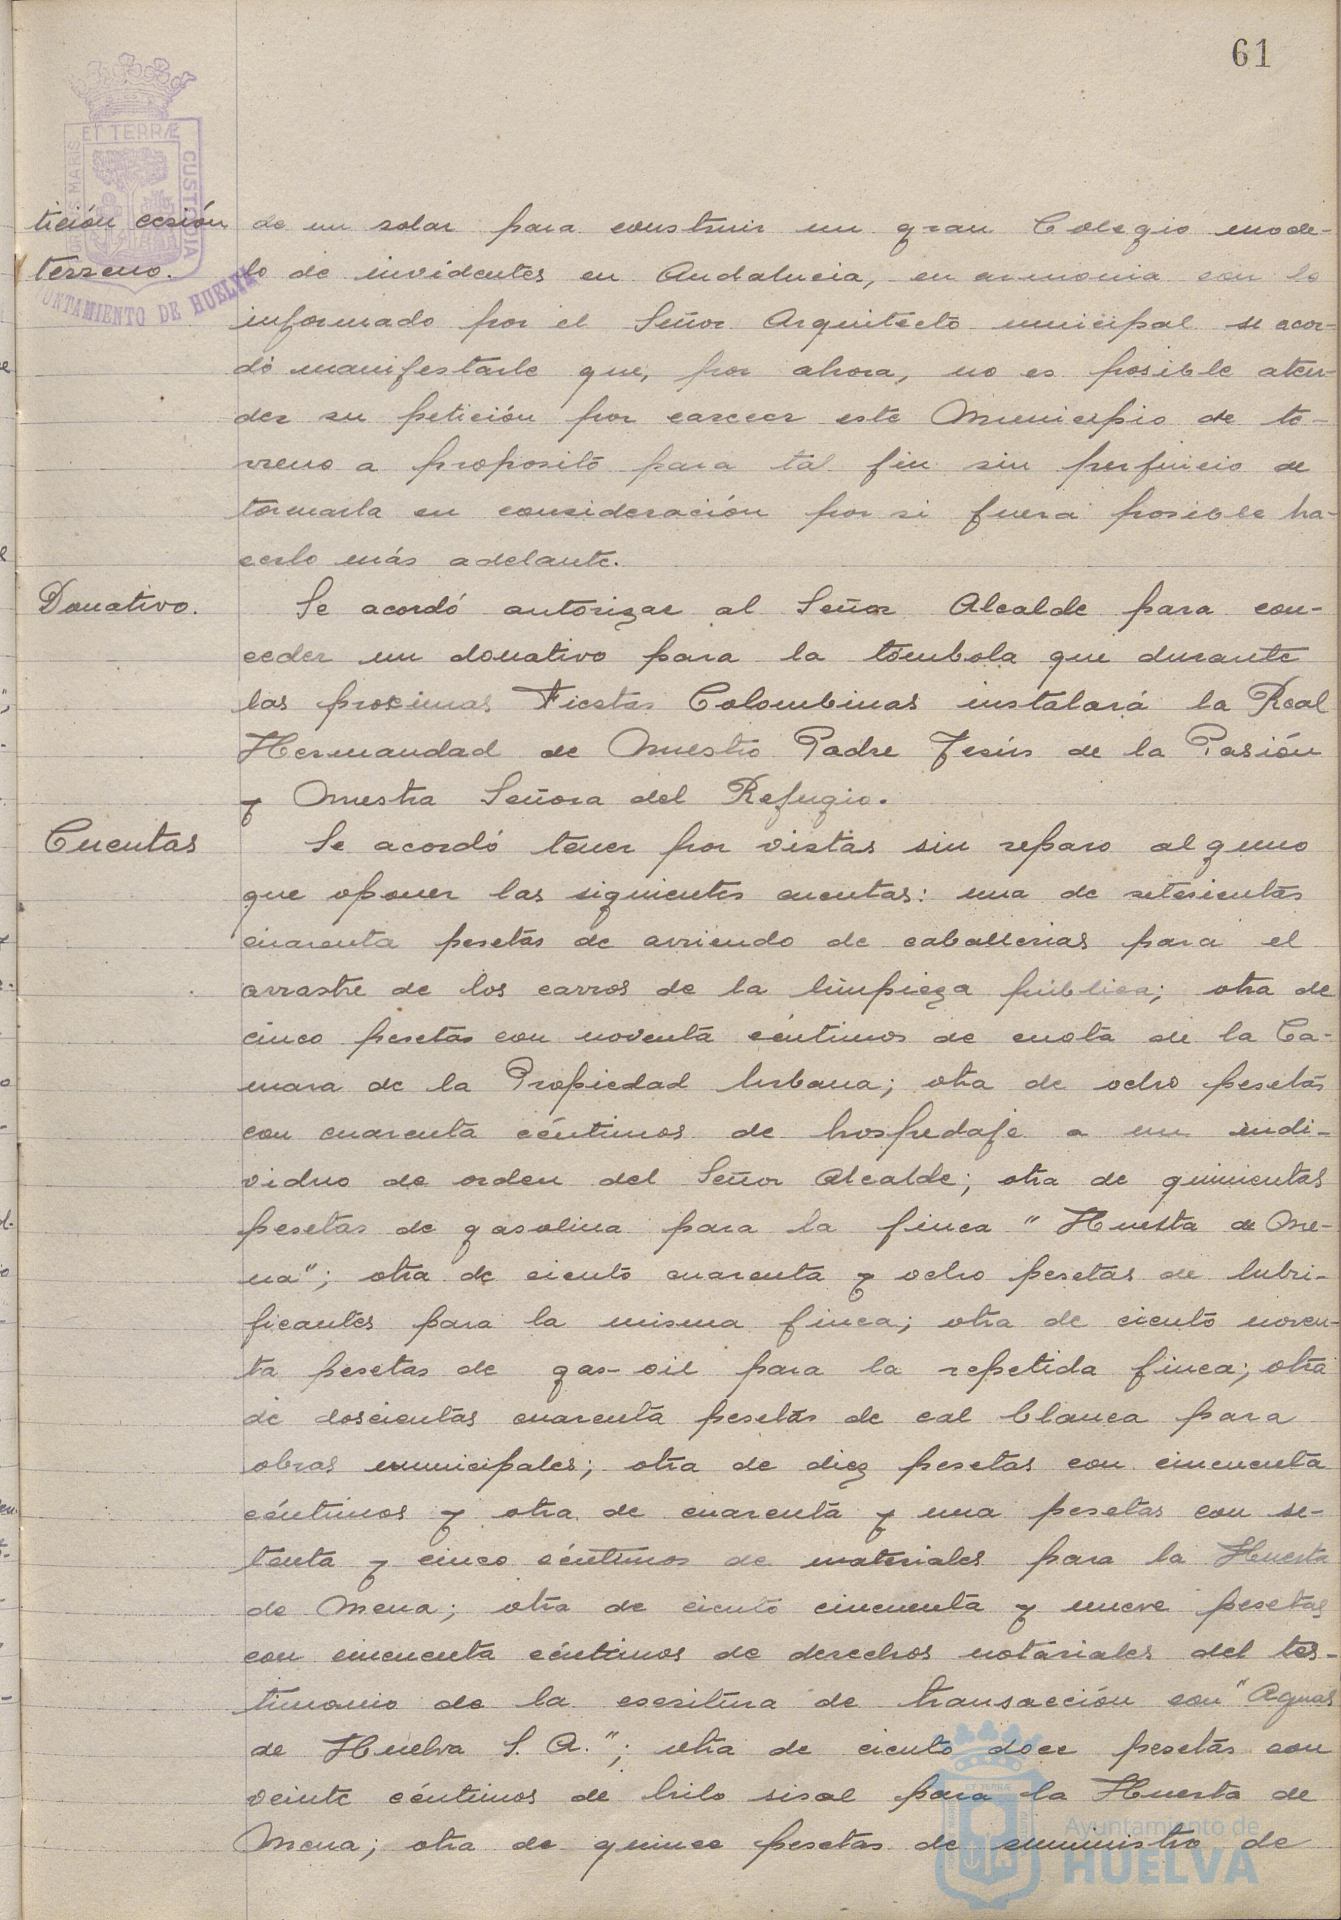 61
tición cesión
terreno.
de un solar para construir un gran Colegio mode-
lo de invidentes en Andalucia, en armonia con lo
informado por el Señor Arquitecto municipal se acor-
dó manifestarle que, por ahora, no es posible aten-
der su petición por carecer este Municipio de te-
rreno a proposito para tal fin sin perjuicio de
tomarla en consideración por si fuera posible ha-
cerlo más adelante.
Donativo.
Se acordó autorizar al Señor Alcalde para con-
ceder un donativo para la tómbola que durante
las proximas Fiestas Colombinas instalará la Real
Hermandad de Nuestro Padre Jesús de la Pasión
y Nuestra Señora del Refugio.
Cuentas
Se acordó tener por vistas sin reparo alguno
que oponer las siguientes cuentas: una de setecientas
cuarenta pesetas de arriendo de caballerias para el
arrastre de los carros de la limpieza pública; otra de
cinco pesetas con noventa céntimos de cuota de la Ca-
mara de la Propiedad Urbana; otra de ocho pesetas
con cuarenta céntimos de hospedaje a un indi-
viduo de orden del Señor Alcalde; otra de quinientas
pesetas de gasolina para la finca "Huerta de Me-
na"; otra de ciento cuarenta y ocho pesetas de lubri-
ficantes para la misma finca; otra de ciento noven-
ta pesetas de gas-oil para la repetida finca; otra
de doscientas cuarenta pesetas de cal blanca para
obras municipales; otra de diez pesetas con cincuenta
céntimos y otra de cuarenta y una pesetas con se-
tenta y cinco céntimos de materiales para la Huerta
de Mena; otra de ciento cincuenta y nueve pesetas
con cincuenta céntimos de derechos notariales del tes-
timonio de la escritura de transacción con "Aguas
de Huelva S. A."; otra de ciento doce pesetas con
veinte céntimos de hilo sisal para la Huerta de
Mena; otra de quince pesetas de suministro de
ET TERRÆ
CUSTODIA
MARIS
AYUNTAMIENTO DE HUELVA
Ayuntamiento de
HUELVA